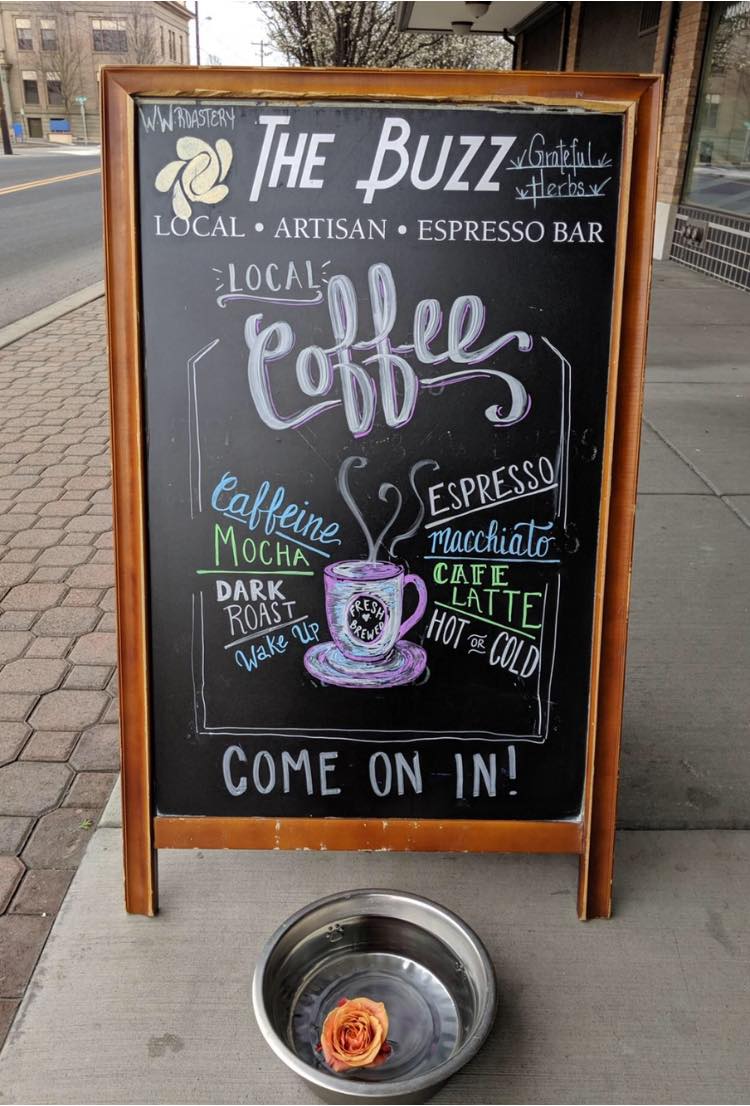 WW·ROASTERY
THE BUZZ
Grateful
Herbs
LOCAL • ARTISAN • ESPRESSO BAR
LOCAL
Coffee
Caffeine
MOCHA
DARK
ROAST
Wake Up
FRESH
BREWED
ESPRESSO
macchiato
CAFE
LATTE
HOT OR COLD
COME ON IN!